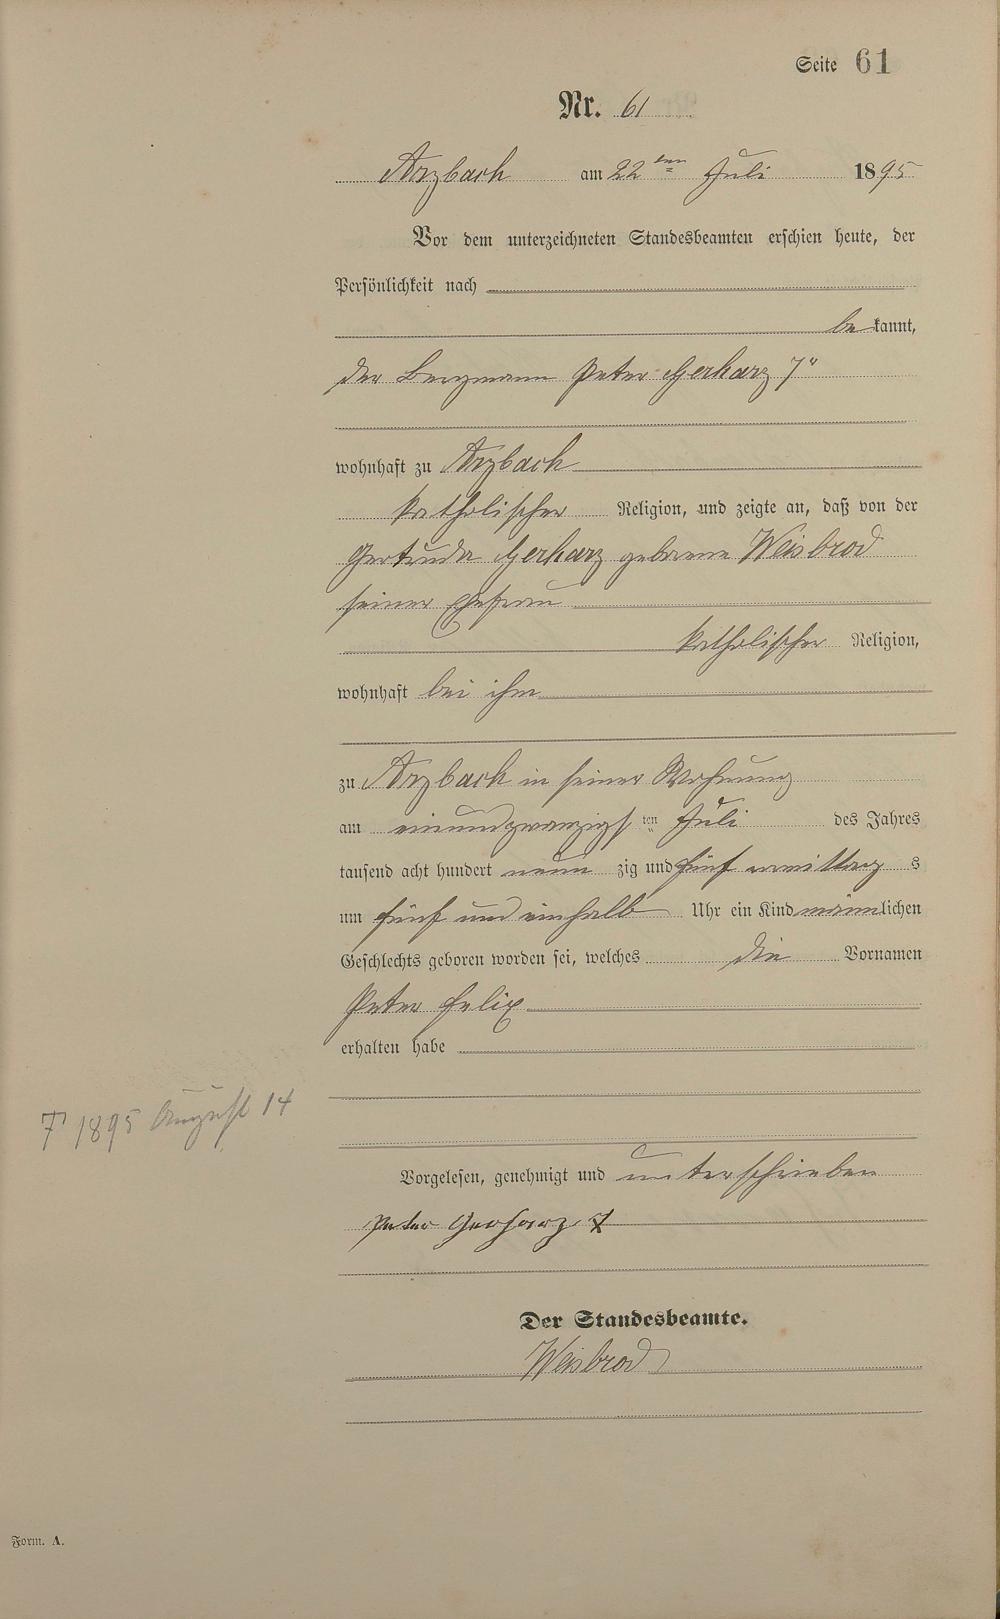 Seite 61
Nr. 61
Arzbach am 22ten Juli 1895
Vor dem unterzeichneten Standesbeamten erschien heute, der
Persönlichkeit nach
bekannt,
der Bergmann Peter Gerharz 7"
wohnhaft zu Arzbach
katholischer Religion, und zeigte an, daß von der
Gertruda Gerharz geborene Weisbrod
seiner Ehefrau
katholischer Religion,
wohnhaft bei ihm
zu Arzbach in seiner Wohnung
am einundzwanzigsten Juli des Jahres
tausend acht hundert neunzig und fünf vormittags
um fünf und einhalb Uhr ein Kind männlichen
Geschlechts geboren worden sei, welches die Vornamen
Peter Felix
erhalten habe
† 1895 August 14
Vorgelesen, genehmigt und unterschrieben
Peter Gerharz 7
Der Standesbeamte.
Weisbrod
Form. A.